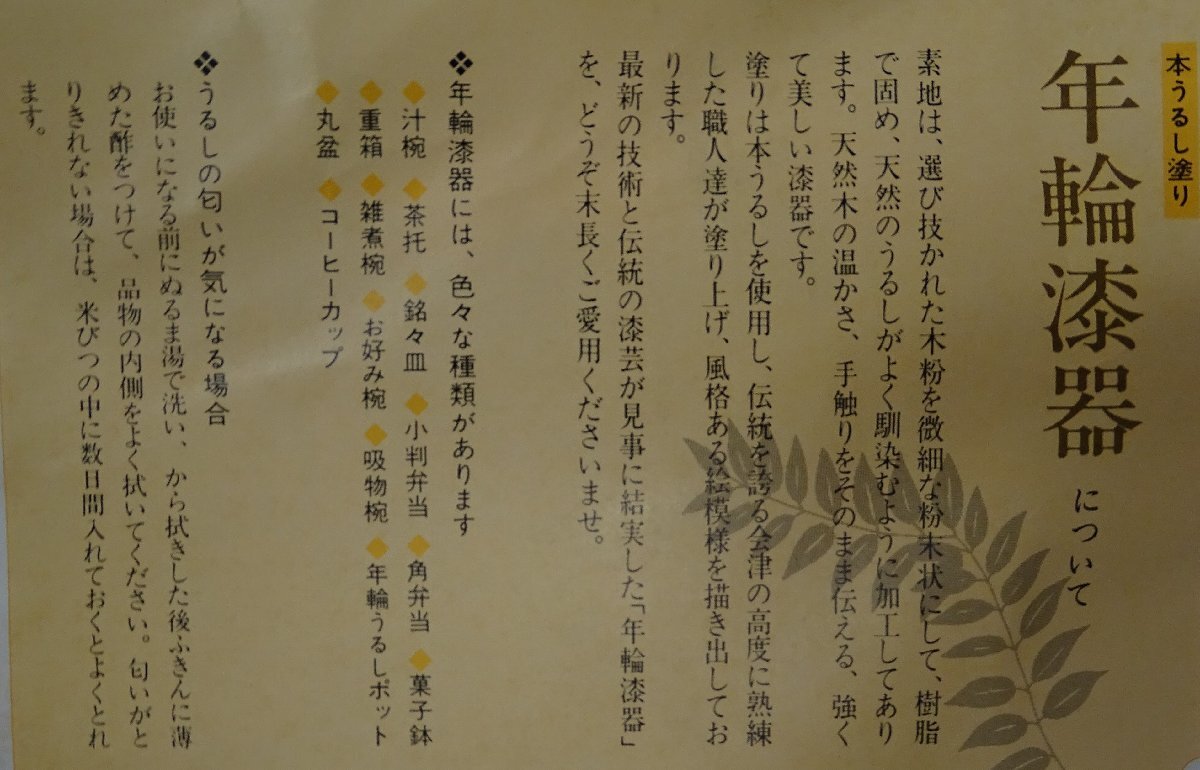 本うるし塗り
年輪漆器について
素地は、選び技かれた木粉を微細な粉末状にして、樹脂
で固め、天然のうるしがよく馴染むように加工してあり
ます。天然木の温かさ、手触りをそのまま伝える、強く
て美しい漆器です。
塗りは本うるしを使用し、伝統を誇る会津の高度に熟練
した職人達が塗り上げ、風格ある絵模様を描き出してお
ります。
最新の技術と伝統の漆芸が見事に結実した「年輪漆器」
を、どうぞ末長くご愛用くださいませ。
❖年輪漆器には、色々な種類があります
◆汁椀 ◆茶托 ◆銘々皿 ◆小判弁当 ◆角弁当 ◆菓子鉢
◆重箱 ◆雑煮椀 ◆お好み椀 ◆吸物椀 ◆年輪うるしポット
◆丸盆 ◆コーヒーカップ
❖うるしの匂いが気になる場合
お使いになる前にぬるま湯で洗い、から拭きした後ふきんに薄
めた酢をつけて、品物の内側をよく拭いてください。匂いがと
りきれない場合は、米びつの中に数日間入れておくとよくとれ
ます。